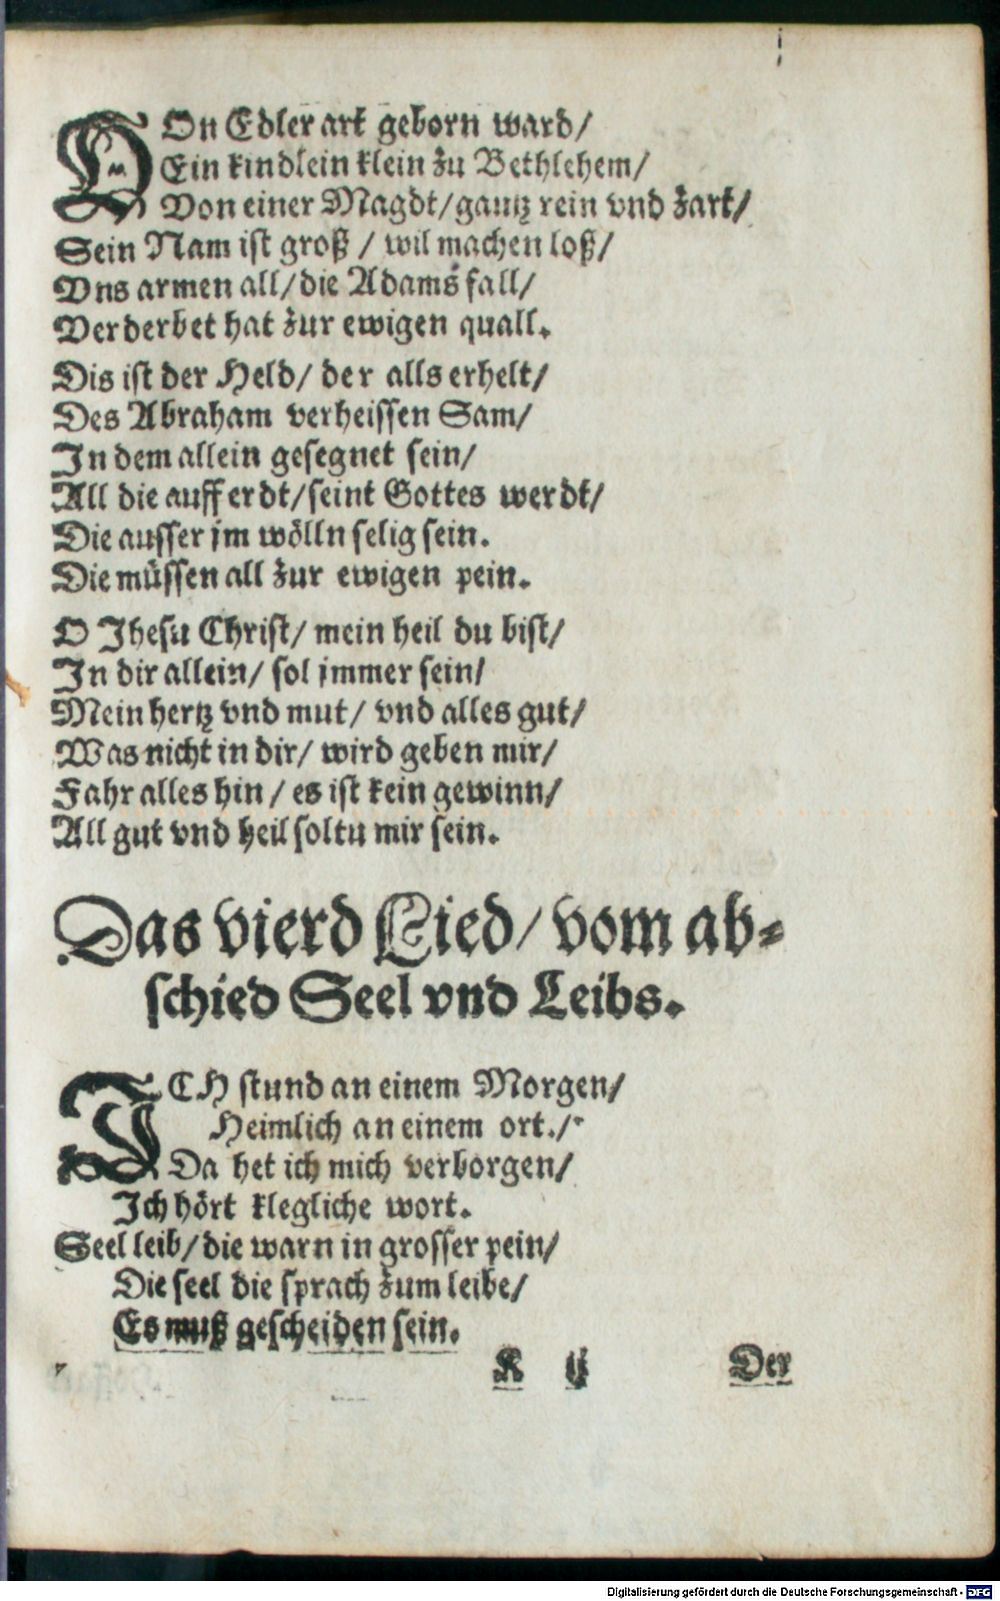 VOn Edler art geborn ward/
Ein kindlein klein zu Bethlehem/
Von einer Magdt/gantz rein vnd zart/
Sein Nam ist groß / wil machen loß/
Vns armen all/die Adams fall/
Verderbet hat zur ewigen quall.
Dis ist der Held/ der alls erhelt/
Des Abraham verheissen Sam/
In dem allein gesegnet sein/
All die auff erdt/seint Gottes werdt/
Die ausser jm wölln selig sein.
Die müssen all zur ewigen pein.
O Jhesu Christ/ mein heil du bist/
In dir allein/ sol jmmer sein/
Mein hertz vnd mut/ vnd alles gut/
Was nicht in dir/ wird geben mir/
Fahr alles hin / es ist kein gewinn/
All gut vnd heil soltu mir sein.
Das vierd Lied/ vom ab-
schied Seel vnd Leibs.
ICH stund an einem Morgen/
Heimlich an einem ort./
Da het ich mich verborgen/
Ich hört klegliche wort.
Seel leib/die warn in grosser pein/
Die seel die sprach zum leibe/
Es muß gescheiden sein.
K ij Der
Digitalisierung gefördert durch die Deutsche Forschungsgemeinschaft - DFG